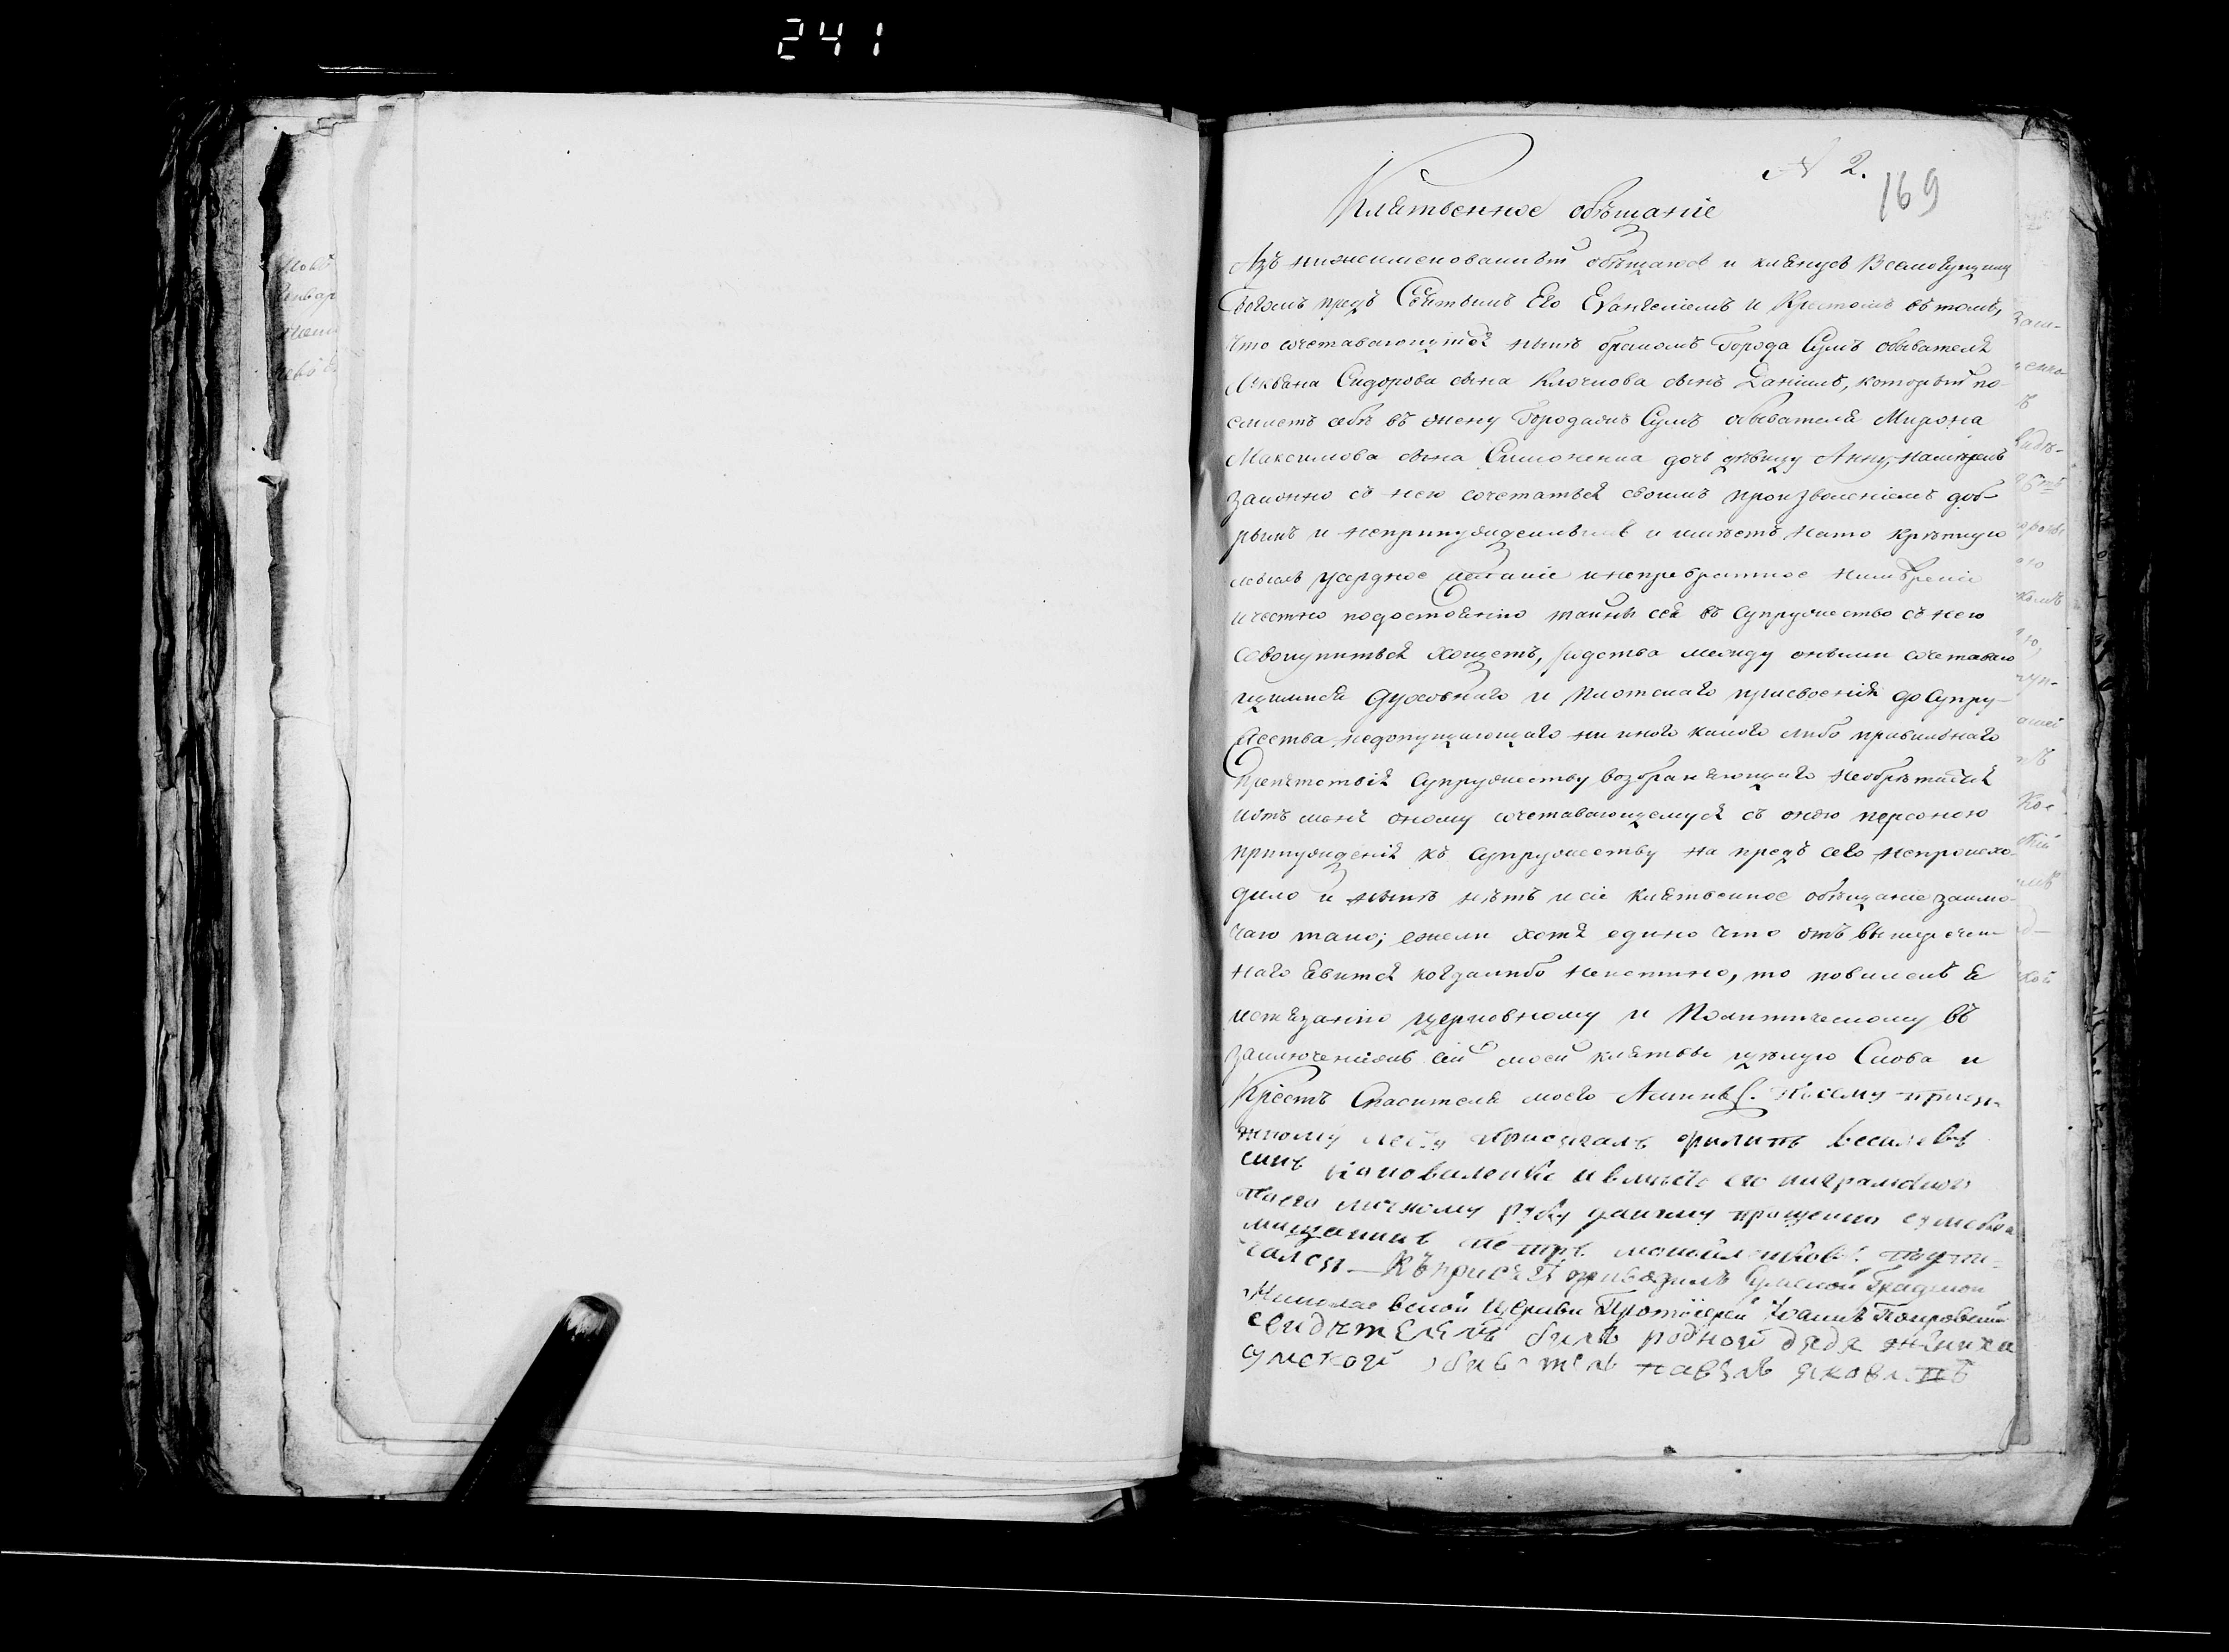 241
N 2.
169
Клятвенное обѣщаніе
Азъ нижеименованный обѣщаюсь и клянусь Всемогущимъ
Богомъ предъ Святымъ Его Евангелиемъ и Крестомъ въ томъ,
что сочетавающійся нынѣ бракомъ Города Сумъ обывателя
Сидорова сына Клочкова сынъ Даніилъ, который по-
емлетъ себѣ въ жену Города Сумъ обывателя Мирона
Максимова сына Симоненка дочь дѣвицу Анну, намѣренъ
законно съ нею сочетаться своимъ произволениемъ доб-
рымъ и непринужденнымъ и имѣетъ на то крѣпкую
мысль усердное желание и непревратное намѣрение
и честно по достоянию тайны сея въ Супружество съ нею
совокупиться хощетъ, родства между оными сочетаваю
щимися духовнаго и плотскаго присвоения до Супру-
жества недопущающаго ни иного какого либо правильнаго
препятствія Супружеству возбраняющаго необрѣтается
и отъ мене оному сочетавающемуся съ оною персоною
принужденія къ Супружеству на предъ сего непроисхо-
дило и нынѣ нѣтъ и сіе клятвенное обѣщание заклю-
чаю тако; ежели хотя едино что отъ вышеречен
наго явится когдалибо неистинно, то повиненъ я
истязанію церковному и Политическому въ
заключеніемъ сей моей клятвы цѣлую Слова и
Крестъ Спасителя моего Аминь. К сему присяж
ному листу присягалъ Филипъ
синъ Коноваленко и вмѣсто его
по его личному рукуданному прошению
мищанинъ петръ
К присягѣ приводилъ Сумской Градской
Николаевской Церкви Протоіерей Іоаннъ Покровский
свидѣтелемъ билъ родной дядя жениха
сумской обивател павелъ